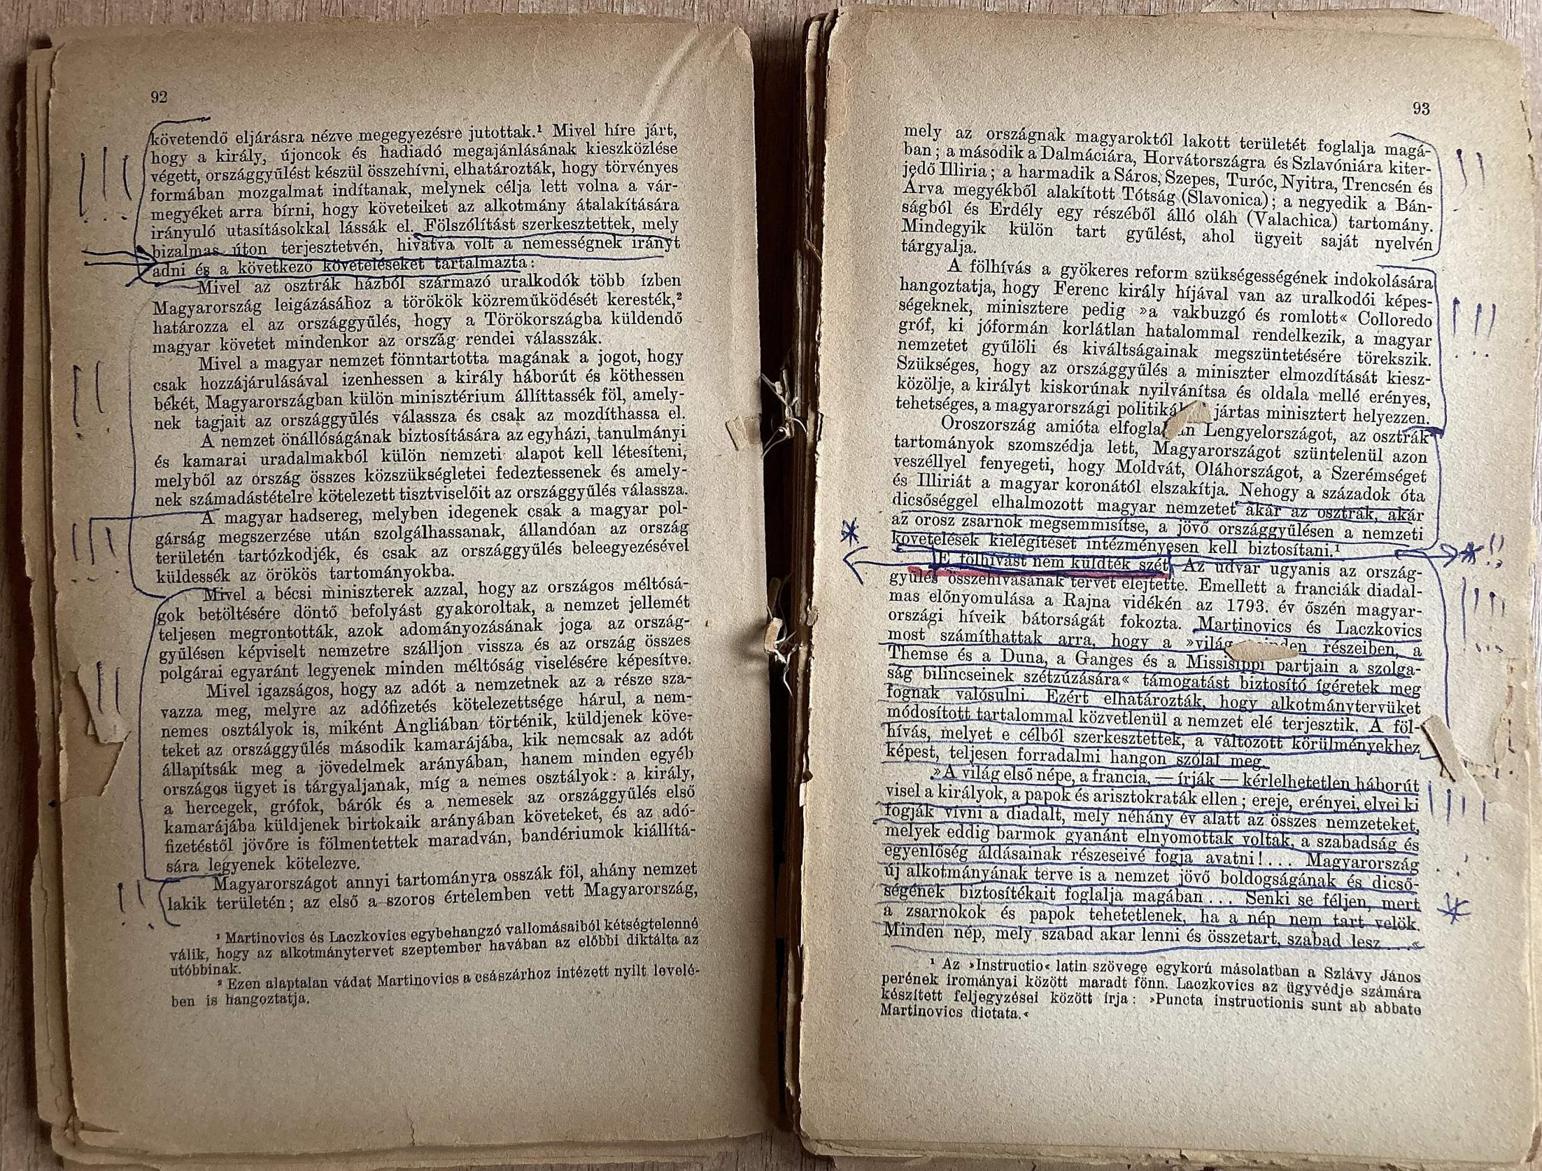 92
követendő eljárásra nézve megegyezésre jutottak.¹ Mivel híre járt,
hogy a király, újoncok és hadiadó megajánlásának kieszközlése
végett, országgyűlést készül összehívni, elhatározták, hogy törvényes
formában mozgalmat indítanak, melynek célja lett volna a vár-
megyéket arra bírni, hogy követeiket az alkotmány átalakítására
irányuló utasításokkal lássák el. Fölszólítást szerkesztettek, mely
bizalmas úton terjesztetvén, hivatva volt a nemességnek irányt
adni és a következő követeléseket tartalmazta:
Mivel az osztrák házból származó uralkodók több ízben
Magyarország leigázásához a törökök közreműködését keresték,²
határozza el az országgyűlés, hogy a Törökországba küldendő
magyar követet mindenkor az ország rendei válasszák.
Mivel a magyar nemzet fönntartotta magának a jogot, hogy
csak hozzájárulásával izenhessen a király háborút és köthessen
békét, Magyarországban külön minisztérium állíttassék föl, amely-
nek tagjait az országgyűlés válassza és csak az mozdíthassa el.
A nemzet önállóságának biztosítására az egyházi, tanulmányi
és kamarai uradalmakból külön nemzeti alapot kell létesíteni,
melyből az ország összes közszükségletei fedeztessenek és amely-
nek számadástételre kötelezett tisztviselőit az országgyűlés válassza.
A magyar hadsereg, melyben idegenek csak a magyar pol-
gárság megszerzése után szolgálhassanak, állandóan az ország
területén tartózkodjék, és csak az országgyűlés beleegyezésével
küldessék az örökös tartományokba.
Mivel a bécsi miniszterek azzal, hogy az országos méltósá-
gok betöltésére döntő befolyást gyakoroltak, a nemzet jellemét
teljesen megrontották, azok adományozásának joga az ország-
gyűlésen képviselt nemzetre szálljon vissza és az ország összes
polgárai egyaránt legyenek minden méltóság viselésére képesítve.
Mivel igazságos, hogy az adót a nemzetnek az a része sza-
vazza meg, melyre az adófizetés kötelezettsége hárul, a nem-
nemes osztályok is, miként Angliában történik, küldjenek köve-
teket az országgyűlés második kamarájába, kik nemcsak az adót
állapítsák meg a jövedelmek arányában, hanem minden egyéb
országos ügyet is tárgyaljanak, míg a nemes osztályok: a király,
a hercegek, grófok, bárók és a nemesek az országgyűlés első
kamarájába küldjenek birtokaik arányában követeket, és az adó-
fizetéstől jövőre is fölmentettek maradván, bandériumok kiállítá-
sára legyenek kötelezve.
Magyarországot annyi tartományra osszák föl, ahány nemzet
lakik területén; az első a szoros értelemben vett Magyarország,
¹ Martinovics és Laczkovics egybehangzó vallomásaiból kétségtelenné
válik, hogy az alkotmánytervet szeptember havában az előbbi diktálta az
utóbbinak.
² Ezen alaptalan vádat Martinovics a császárhoz intézett nyilt levelé-
ben is hangoztatja.
93
mely az országnak magyaroktól lakott területét foglalja magá-
ban; a második a Dalmáciára, Horvátországra és Szlavóniára kiter-
jedő Illiria; a harmadik a Sáros, Szepes, Turóc, Nyitra, Trencsén és
Árva megyékből alakított Tótság (Slavonica); a negyedik a Bán-
ságból és Erdély egy részéből álló oláh (Valachica) tartomány.
Mindegyik külön tart gyűlést, ahol ügyeit saját nyelvén
tárgyalja.
A fölhívás a gyökeres reform szükségességének indokolására
hangoztatja, hogy Ferenc király híjával van az uralkodói képes-
ségeknek, minisztere pedig »a vakbuzgó és romlott« Colloredo
gróf, ki jóformán korlátlan hatalommal rendelkezik, a magyar
nemzetet gyűlöli és kiváltságainak megszüntetésére törekszik.
Szükséges, hogy az országgyűlés a miniszter elmozdítását kiesz-
közölje, a királyt kiskorúnak nyilvánítsa és oldala mellé erényes,
tehetséges, a magyarországi politiká jártas minisztert helyezzen.
Oroszország amióta elfogla án Lengyelországot, az osztrák
tartományok szomszédja lett, Magyarországot szüntelenül azon
veszéllyel fenyegeti, hogy Moldvát, Oláhországot, a Szerémséget
és Illiriát a magyar koronától elszakítja. Nehogy a századok óta
dicsőséggel elhalmozott magyar nemzetet akár az osztrák, akár
az orosz zsarnok megsemmisítse, a jövő országgyűlésen a nemzeti
követelések kielégítését intézményesen kell biztosítani.¹
E fölhívást nem küldték szét. Az udvar ugyanis az ország-
gyűlés összehívásának tervét elejtette. Emellett a franciák diadal-
mas előnyomulása a Rajna vidékén az 1793. év őszén magyar-
országi híveik bátorságát fokozta. Martinovics és Laczkovics
most számíthattak arra, hogy a »világ minden részeiben, a
Themse és a Duna, a Ganges és a Missisippi partjain a szolga-
ság bilincseinek szétzúzására« támogatást biztosító ígéretek meg
fognak valósulni. Ezért elhatározták, hogy alkotmánytervüket
módosított tartalommal közvetlenül a nemzet elé terjesztik. A föl-
hívás, melyet e célból szerkesztettek, a változott körülményekhez
képest, teljesen forradalmi hangon szólal meg.
»A világ első népe, a francia, — írják — kérlelhetetlen háborút
visel a királyok, a papok és arisztokraták ellen; ereje, erényei, elvei ki
fogják vívni a diadalt, mely néhány év alatt az összes nemzeteket,
melyek eddig barmok gyanánt elnyomottak voltak, a szabadság és
egyenlőség áldásainak részeseivé fogja avatni!... Magyarország
új alkotmányának terve is a nemzet jövő boldogságának és dicső-
ségének biztosítékait foglalja magában... Senki se féljen, mert
a zsarnokok és papok tehetetlenek, ha a nép nem tart velök.
Minden nép, mely szabad akar lenni és összetart, szabad lesz....«
¹ Az »Instructio« latin szövege egykorú másolatban a Szlávy János
perének irományai között maradt fönn. Laczkovics az ügyvédje számára
készített feljegyzései között írja: »Puncta instructionis sunt ab abbate
Martinovics dictata.«